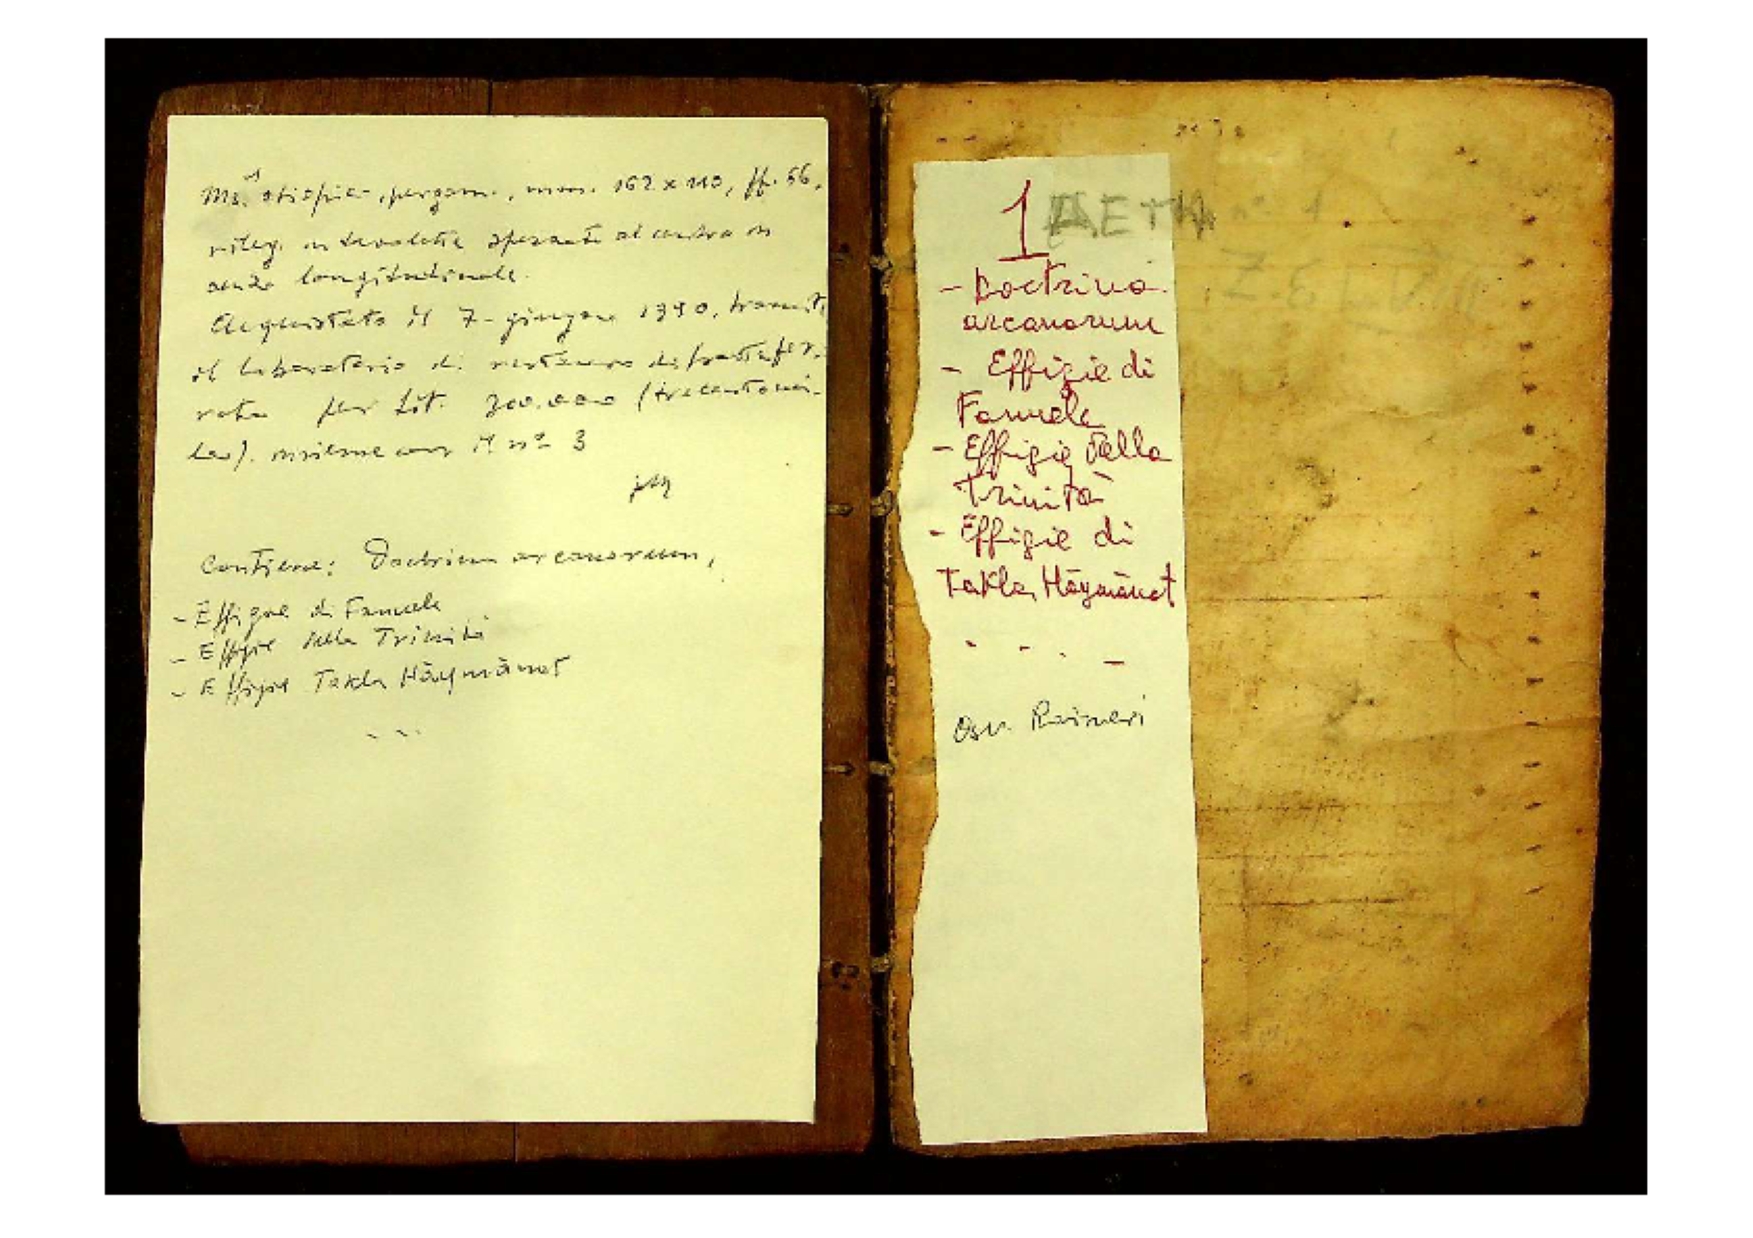 Ms. etiopico, pergam., mm. 162 x 110, ff. 56,
rileg. in tavolette spezzate al centro in
senso longitudinale.
Acquistato il 7 giugno 1990, tramite
il laboratorio di restauro di
per Lit. 300.000 (trecentomi-
la). insieme con il n° 3
Contiene: Doctrina arcanorum,
- Effigie di Fanuele
- Effigie della Trinità
- Effigie Takla Hāymānot
1 AETH n° 1
- Doctrina
arcanorum
- Effigie di
Fanuele
- Effigie della
Trinità
- Effigie di
Takla Hāymānot
Osv. Raineri